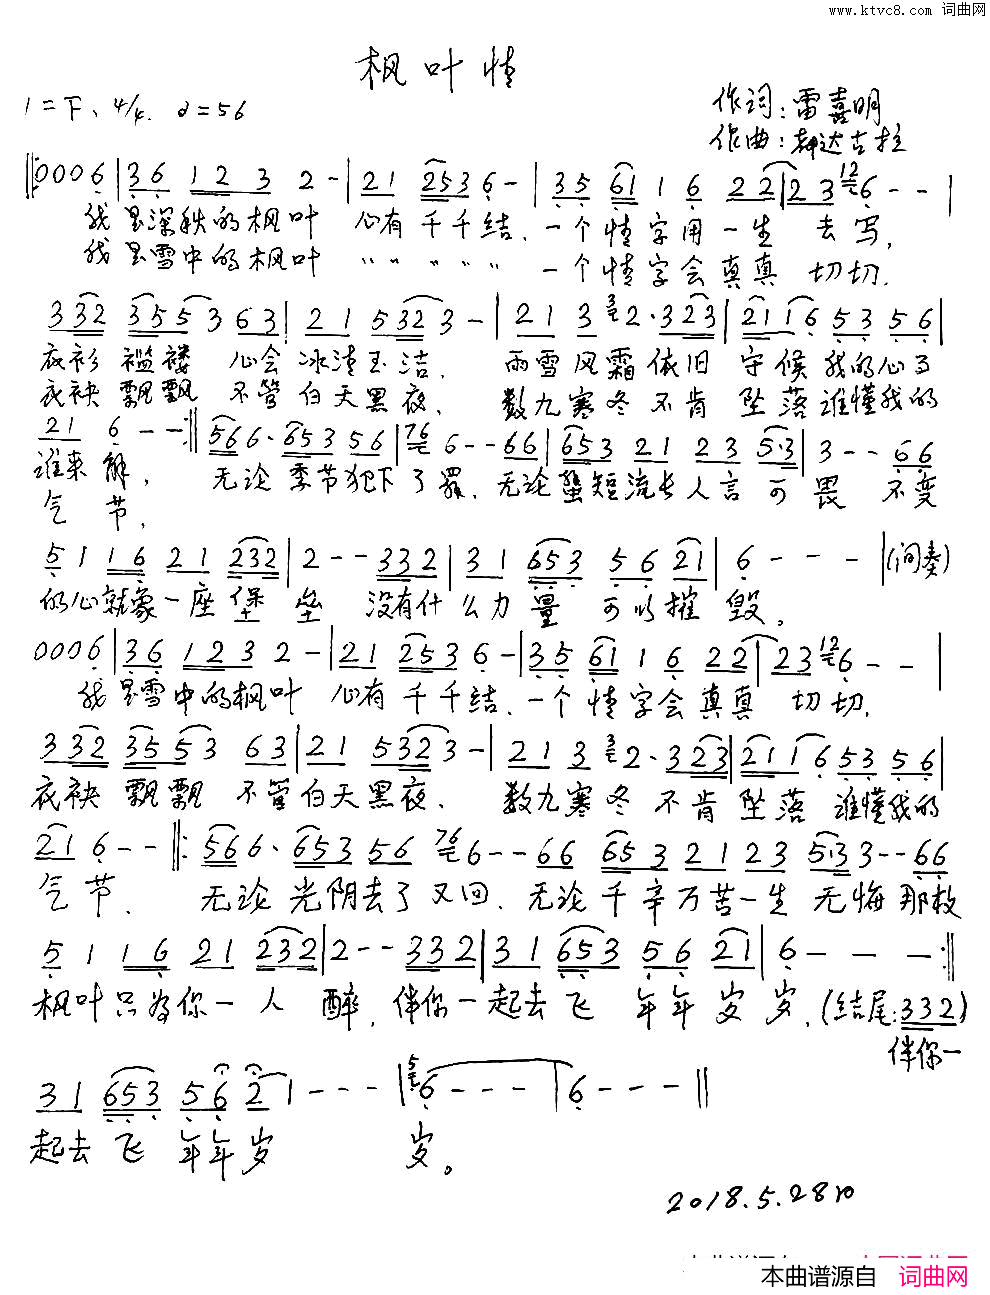 www.ktvc8.com 词曲网
枫叶情
1=F、4/4. ♩=56
作词:雷喜明
作曲:都达古拉
‖:0006|36 123 2-|21 2535 6-|35 61 1 6 22|23 12 6--|
我是深秋的枫叶 心有千千结、一个情字用一生 去写,
我是雪中的枫叶 〃〃〃〃〃 一个情字会真真 切切.
332 3553 63|21 532 3-|21 3 3 2·323|2116 53 56|
衣衫褴褛 心会冰清玉洁. 雨雪风霜依旧 守候我的心与
衣袂飘飘 不管白天黑夜. 数九寒冬不肯 坠落谁懂我的
21 6--:‖566·653 56|76 6--66|653 21 23 5·3|3--66
谁来解, 无论季节犯下了罪、无论蜚短流长人言可畏 不变
气节,
51 16 21 232|2--332|31 653 56 21|6---|(间奏)
的心就象一座堡 垒 没有什么力量 可以摧毁。
0006|36 123 2-|21 2535 6-|35 61 1 6 22|23 12 6--|
我是雪中的枫叶 心有千千结、一个情字会真真 切切.
332 3553 63|21 532 3-|21 3 3 2·323|2116 53 56|
衣袂飘飘 不管白天黑夜. 数九寒冬不肯坠落 谁懂我的
21 6--‖:566·653 56 76 6--66 653 21 23 5·33--66
气节. 无论光阴去了又回.无论千辛万苦一生无悔那枚
51 16 21 232|2--332|31 653 56 21|6---:‖
枫叶只为你一人 醉,伴你一起去飞 年年岁岁.(结尾:332)
伴你一
31 653 56 21---|5 6---|6---‖
起去飞 年年岁 岁。
2018.5.28
本曲谱源自 词曲网